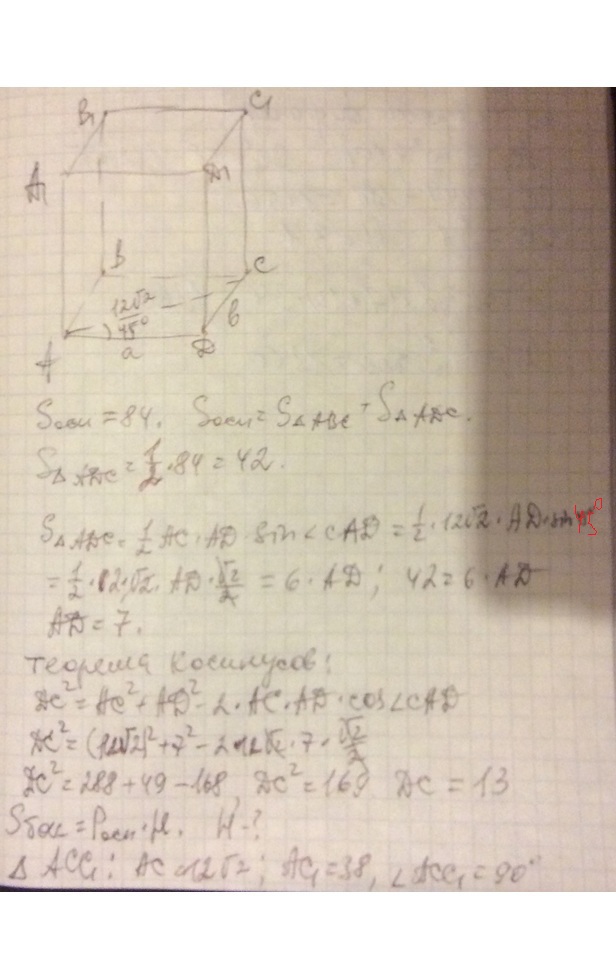 B₁ C₁
A₁ D₁
B C
12√2
45°
в
A a D
Sосн = 84. Sосн = S△ABC + S△ADC.
S△ADC = 1/2 · 84 = 42.
S△ADC = 1/2 AC · AD · sin ∠CAD = 1/2 · 12√2 · AD · sin 45°
= 1/2 · 12 · √2 · AD · √2/2 = 6 · AD ; 42 = 6 · AD
AD = 7.
теорема косинусов:
DC² = AC² + AD² - 2 · AC · AD · cos ∠CAD
DC² = (12√2)² + 7² - 2·12√2 · 7 · √2/2
DC² = 288 + 49 - 168, DC² = 169 DC = 13
Sбок = Pосн · H. H - ?
△ ACC₁ : AC = 12√2 ; AC₁ = 38, ∠ACC₁ = 90°